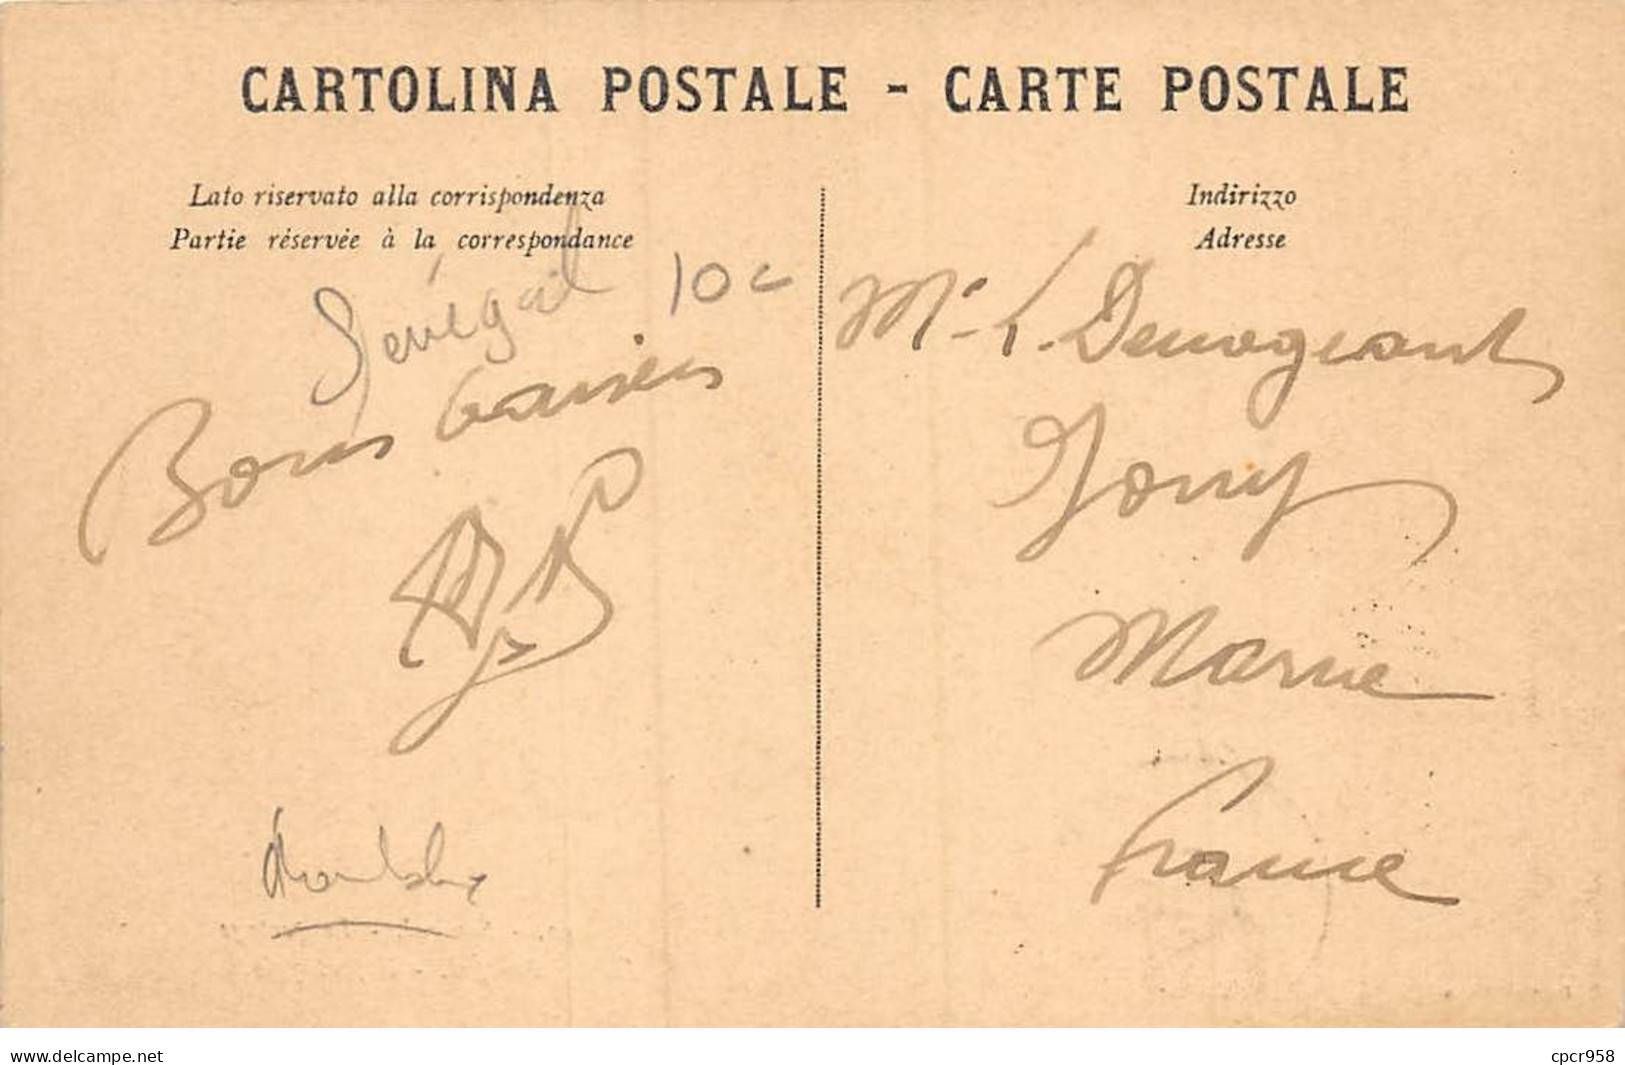 CARTOLINA POSTALE - CARTE POSTALE
Lato riservato alla corrispondenza
Partie réservée à la correspondance
Indirizzo
Adresse
Sénégal 10c
Bons baisers
Mr L. Demogeant
Marne
France
cpcr958
Website: https://www.delcampe.net